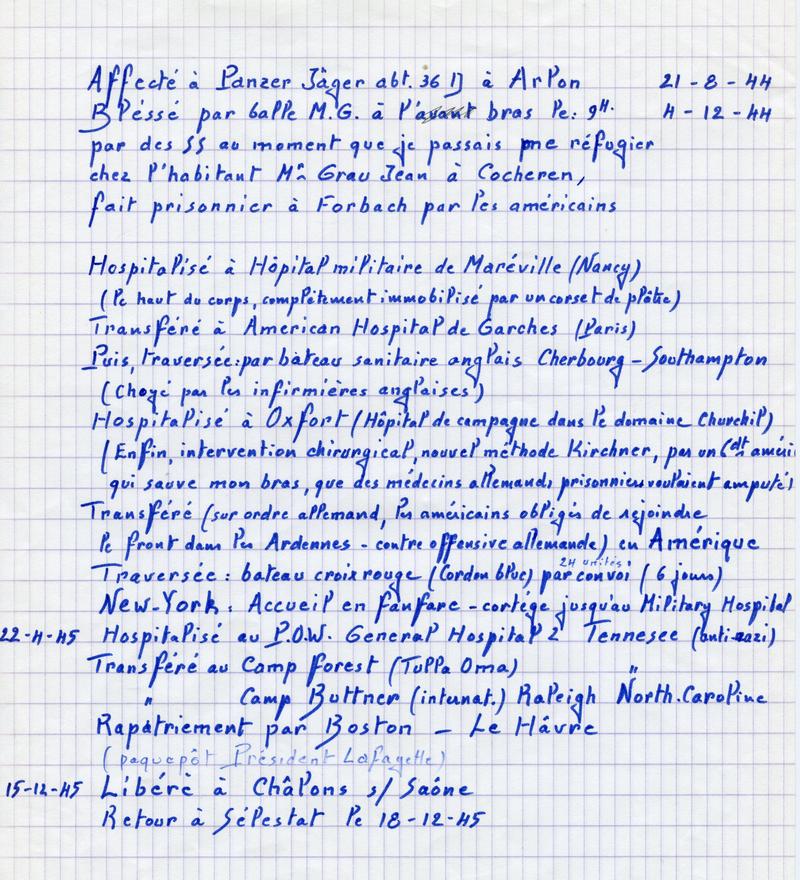 Affecté à Panzer Jäger abt. 36 à Arlon 21-8-44
Bléssé par balle M.G. à l'avant bras le: 9H. 4-12-44
par des SS au moment que je passais me réfugier
chez l'habitant Mr Grau Jean à Cocheren,
fait prisonnier à Forbach par les américains
Hospitalisé à Hôpital militaire de Maréville (Nancy)
(le haut du corps, complètement immobilisé par un corset de plâtre)
Transféré à American Hospital de Garches (Paris)
Puis, traversée: par bâteau sanitaire anglais Cherbourg - Southampton
(Choyé par les infirmières anglaises)
Hospitalisé à Oxfort (Hôpital de campagne dans le domaine Churchil)
(Enfin, intervention chirurgical, nouvel méthode Kirchner, par un Cdt améri
qui sauve mon bras, que des médecins allemands prisonniers voulaient amputé)
Transféré (sur ordre allemand, les américains obligés de rejoindre
le front dans les Ardennes - contre offensive allemande) en Amérique
Traversée: bateau croix rouge (Cordon bleu) par convoi 24 unités (6 jours)
New-York: Accueil en fanfare - cortège jusqu'au Military Hospital
22-4-45 Hospitalisé au P.O.W. General Hospital 2 Tennesee (anti-nazi)
Transféré au Camp Forest (Tulla Oma) "
" Camp Buttner (internat.) Raleigh North.Caroline
Rapatriement par Boston - Le Hâvre
(paquepôt Président Lafayette)
15-12-45 Libéré à Châlons s/ Saône
Retour à Sélestat le 18-12-45